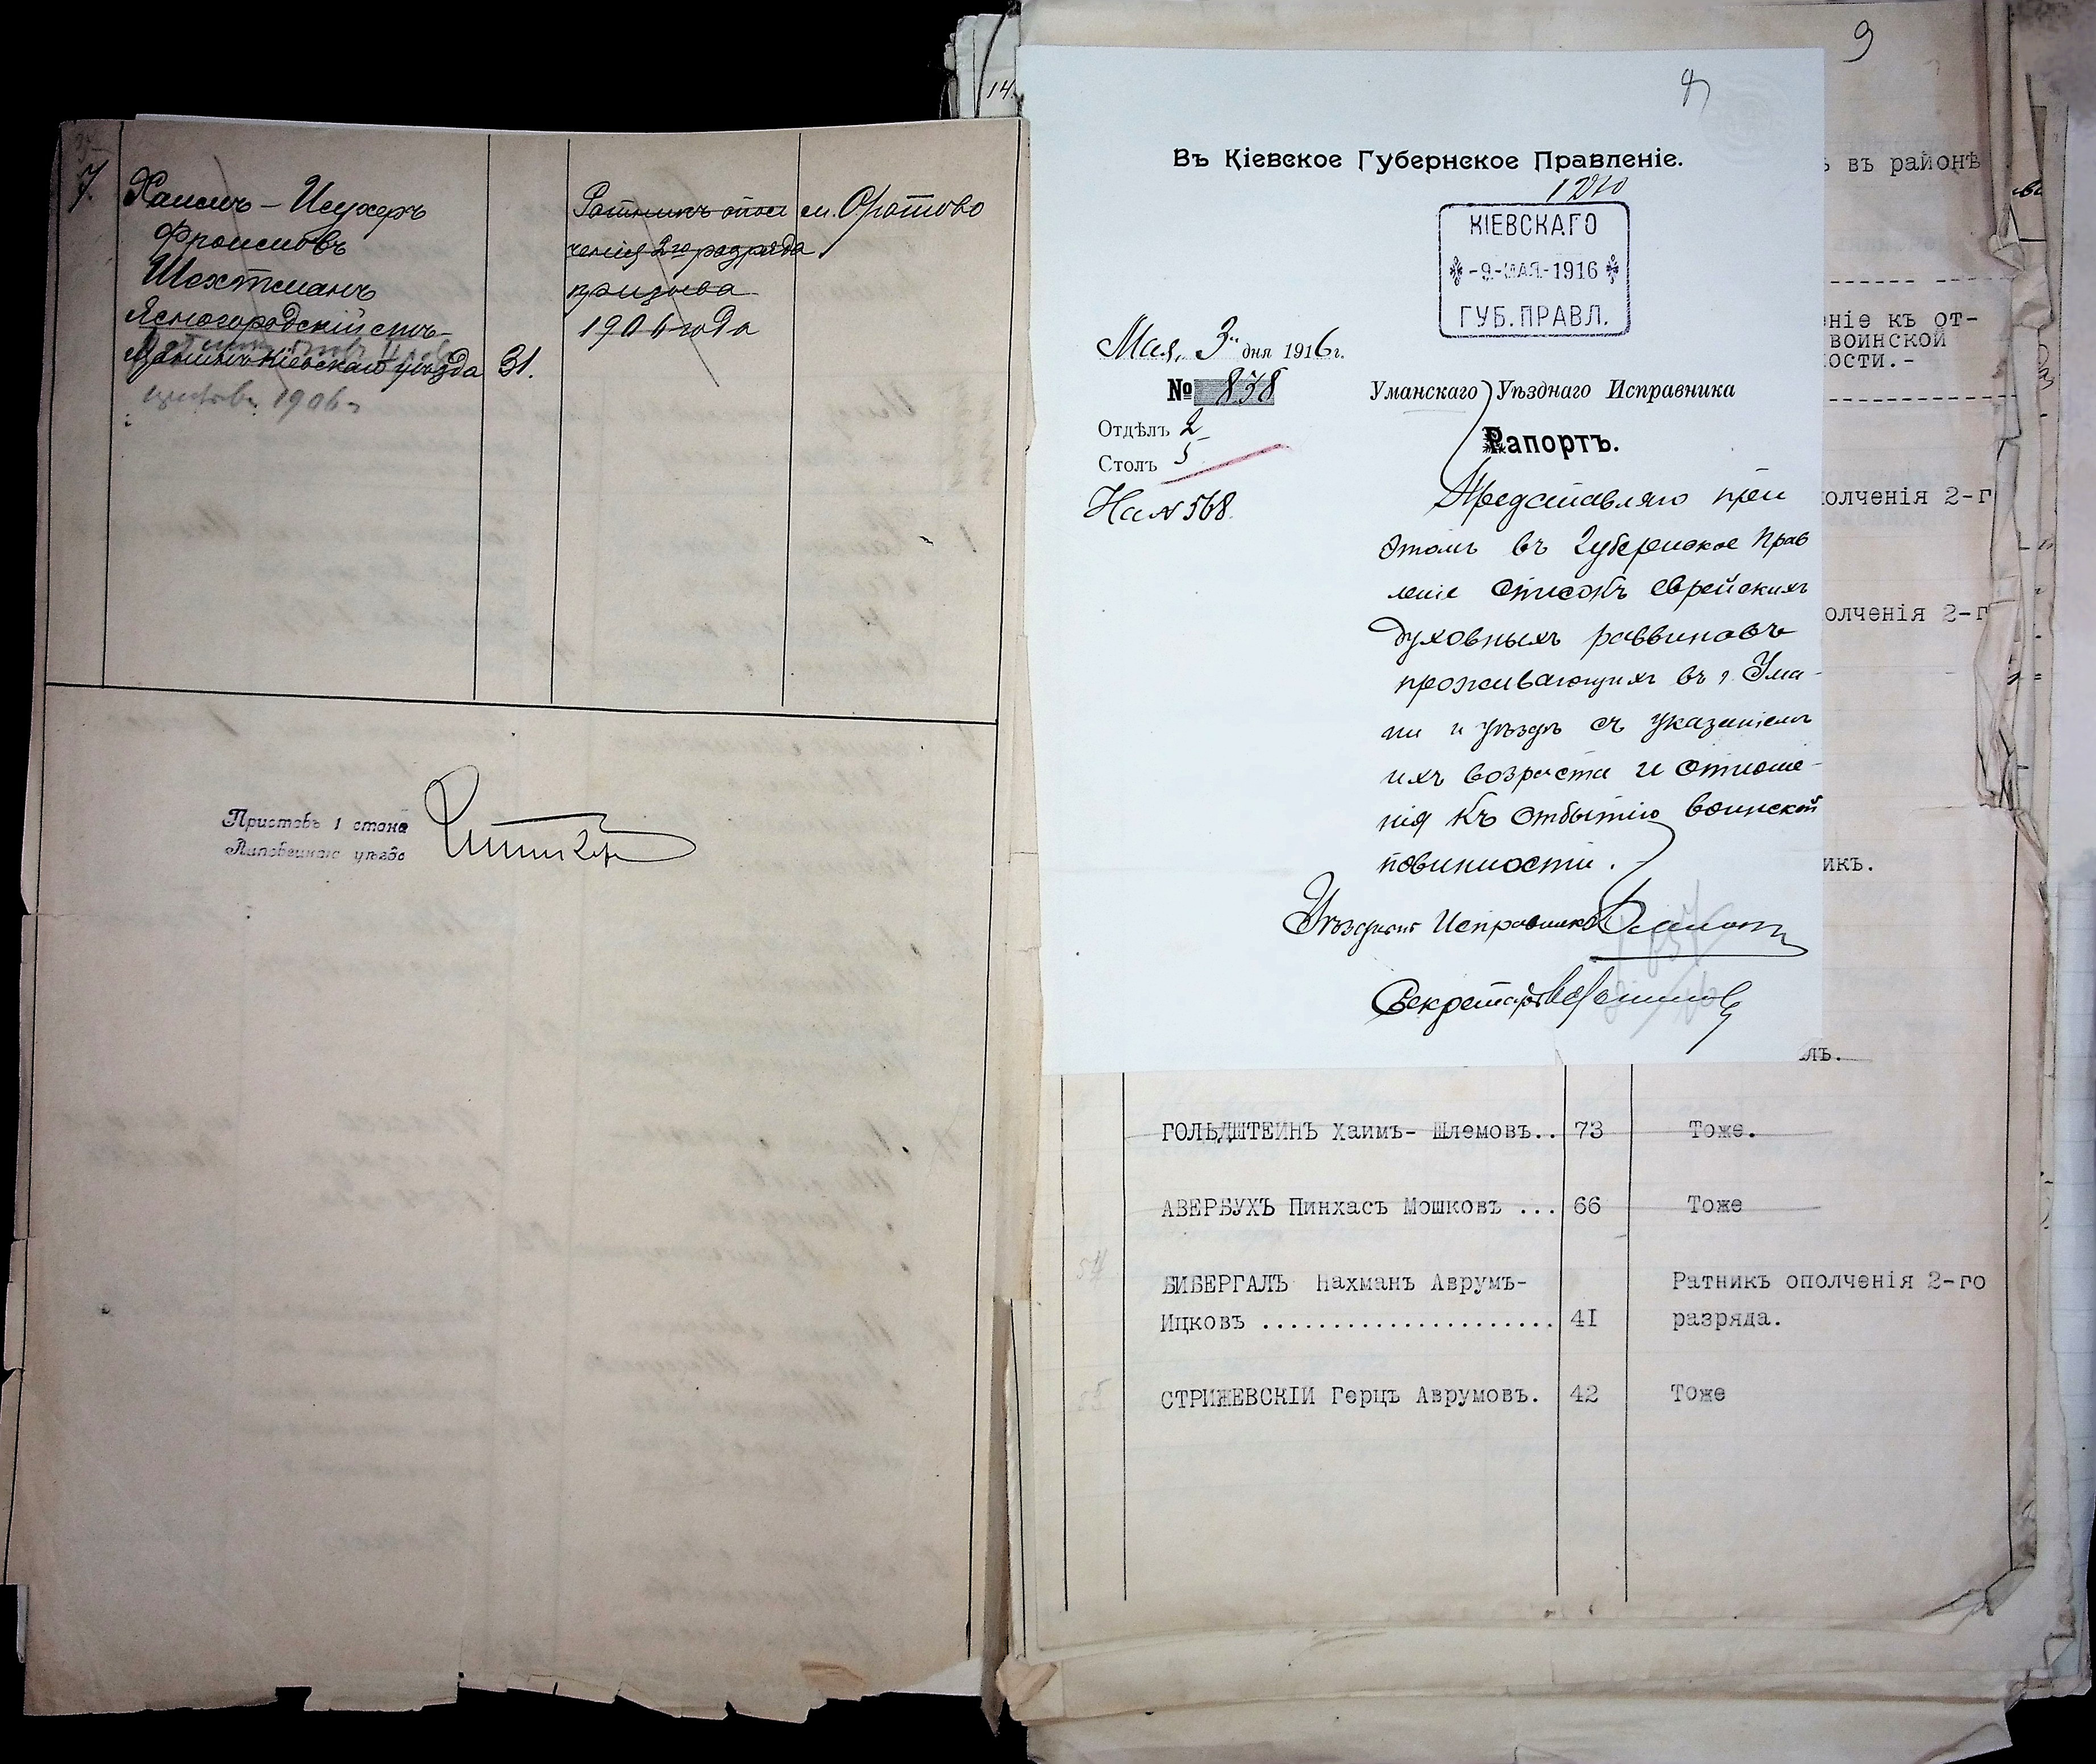 7.
Хаимъ-Исухеръ
Фроимовъ
Шехтманъ
Ясногородскій мѣ-
щанинъ Кіевскаго уѣзда 31.
1906 г
Ратникъ опол
ченія 2го разряда
призыва
1906 года
м. Оратово
Приставъ 1 стана
Липовецкаго уѣзда
14.
9
Въ Кіевское Губернское Правленіе.
КІЕВСКАГО
-9-МАЯ-1916
ГУБ. ПРАВЛ.
Мая, 3 дня 1916 г.
№ 838
Отдѣлъ 2
Столъ 5
На № 568.
Уманскаго Уѣзднаго Исправника
Рапортъ.
Представляю при
этомъ въ Губернское Прав
леніе списокъ еврейскихъ
духовныхъ раввиновъ
проживающихъ въ г. Ума-
ни и уѣздѣ съ указаніемъ
ихъ возраста и отноше-
нія къ отбытію воинской
повинности.
Уѣздный Исправникъ
Секретарь
въ районѣ
ніе къ от-
воинской
ости.-
олченія 2-г
олченія 2-г
икъ.
лъ.
ГОЛЬДШТЕИНЪ Хаимъ- Шлемовъ.. 73 Тоже.
АВЕРБУХЪ Пинхасъ Мошковъ ... 66 Тоже
54
БИБЕРГАЛЬ Нахманъ Аврумъ- Ратникъ ополченія 2-го
Ицковъ ..................... 4I разряда.
55
СТРИЖЕВСКІЙ Герцъ Аврумовъ. 42 Тоже